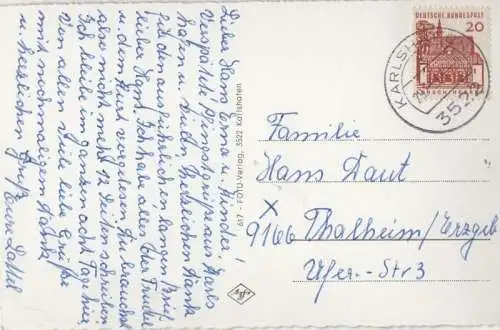 Liebe Hans Erna u. Kinder!
Verspätete Grüße aus Karls
hafen u. vielen herzlichen Dank
für den ausführlichen langen Brief.
lieber Hans. Ich habe alles Eur Trude
u. dem Kurt vorgelesen Du brauchst
also nicht mehr 12 Seiten schreiben
Ich bleibe im ganzen acht Tage hier,
von allen viele liebe Grüße
mit nochmaligem Dank
u. herzlichen Grüß Eure
617 - FOTO-Verlag, 3522 Karlshafen
Agfa
DEUTSCHE BUNDESPOST
20
KARLSHAFEN
3522
Familie
Hans Daut
x
9166 Thalheim/Erzgeb
Ufer-Str 3